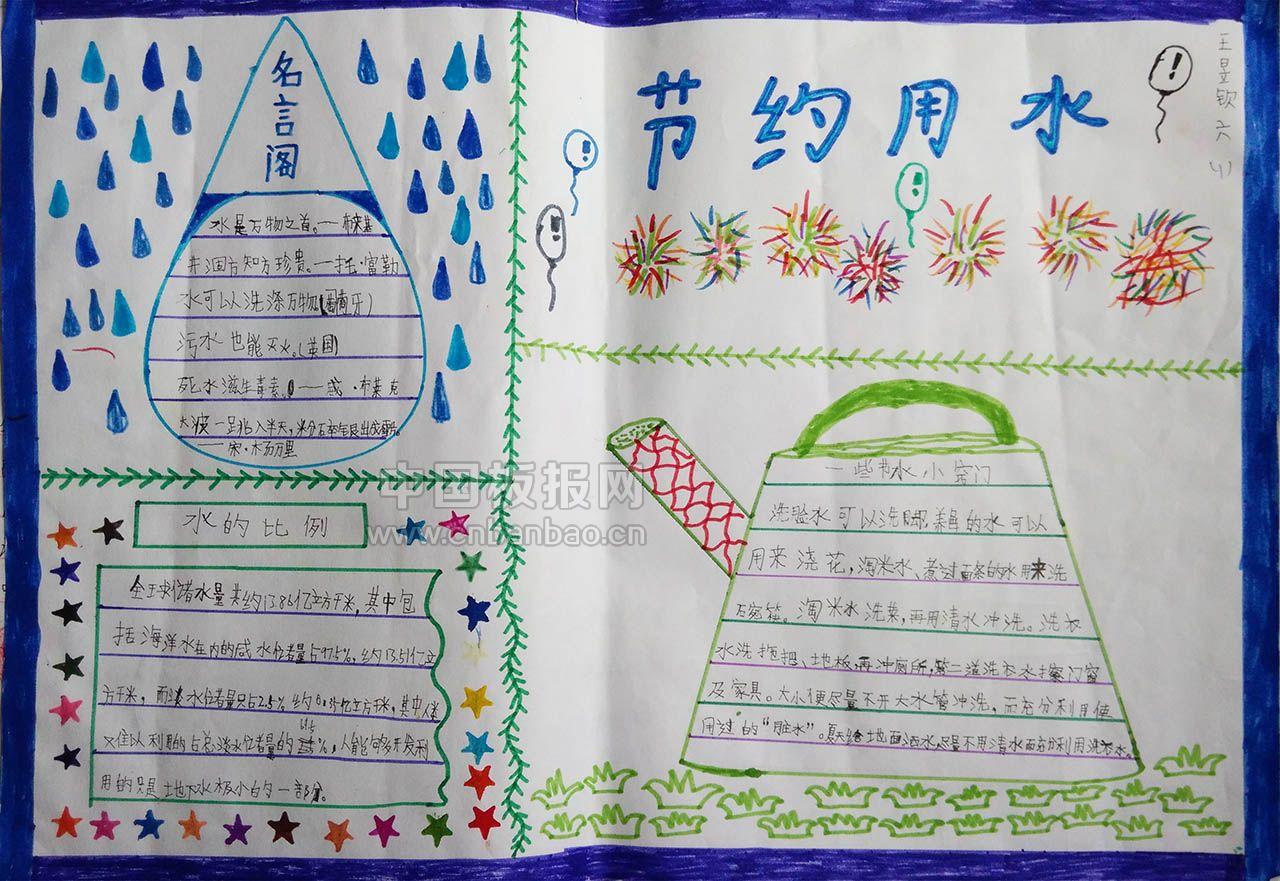 节约用水
王昱钦 六
名言阁
水是万物之首。——布莱基
井涸方知方珍贵。—托·富勒
水可以洗涤万物。(葡萄牙)
污水也能灭火。(英国)
死水滋生毒素。——威·布莱克
——宋·杨万里
中国板报网
www.cnbanbao.cn
水的比例
全球储水量共约13.86亿立方米,其中包
括海洋水在内的咸水储量占97.5%,约13.51亿立
方千米,而淡水储量只占2.5%,约0.35亿立方千米,其中人类
又难以利用的占总淡水储量的 %,人能够多开发利
用的只是地下水极小的一部分。
一些节水小窍门
洗脸水可以洗脚,养鱼的水可以
用来浇花,淘米水、煮过面条的水用来洗
碗筷。淘米水洗菜,再用清水冲洗。洗衣
水洗拖把、地板,再冲厕所,第二道洗衣水擦门窗
及家具。大小便尽量不开大水管冲洗,而充分利用使
用过的“脏水”。夏天给地面洒水,尽量不用清水而充分利用洗衣水。